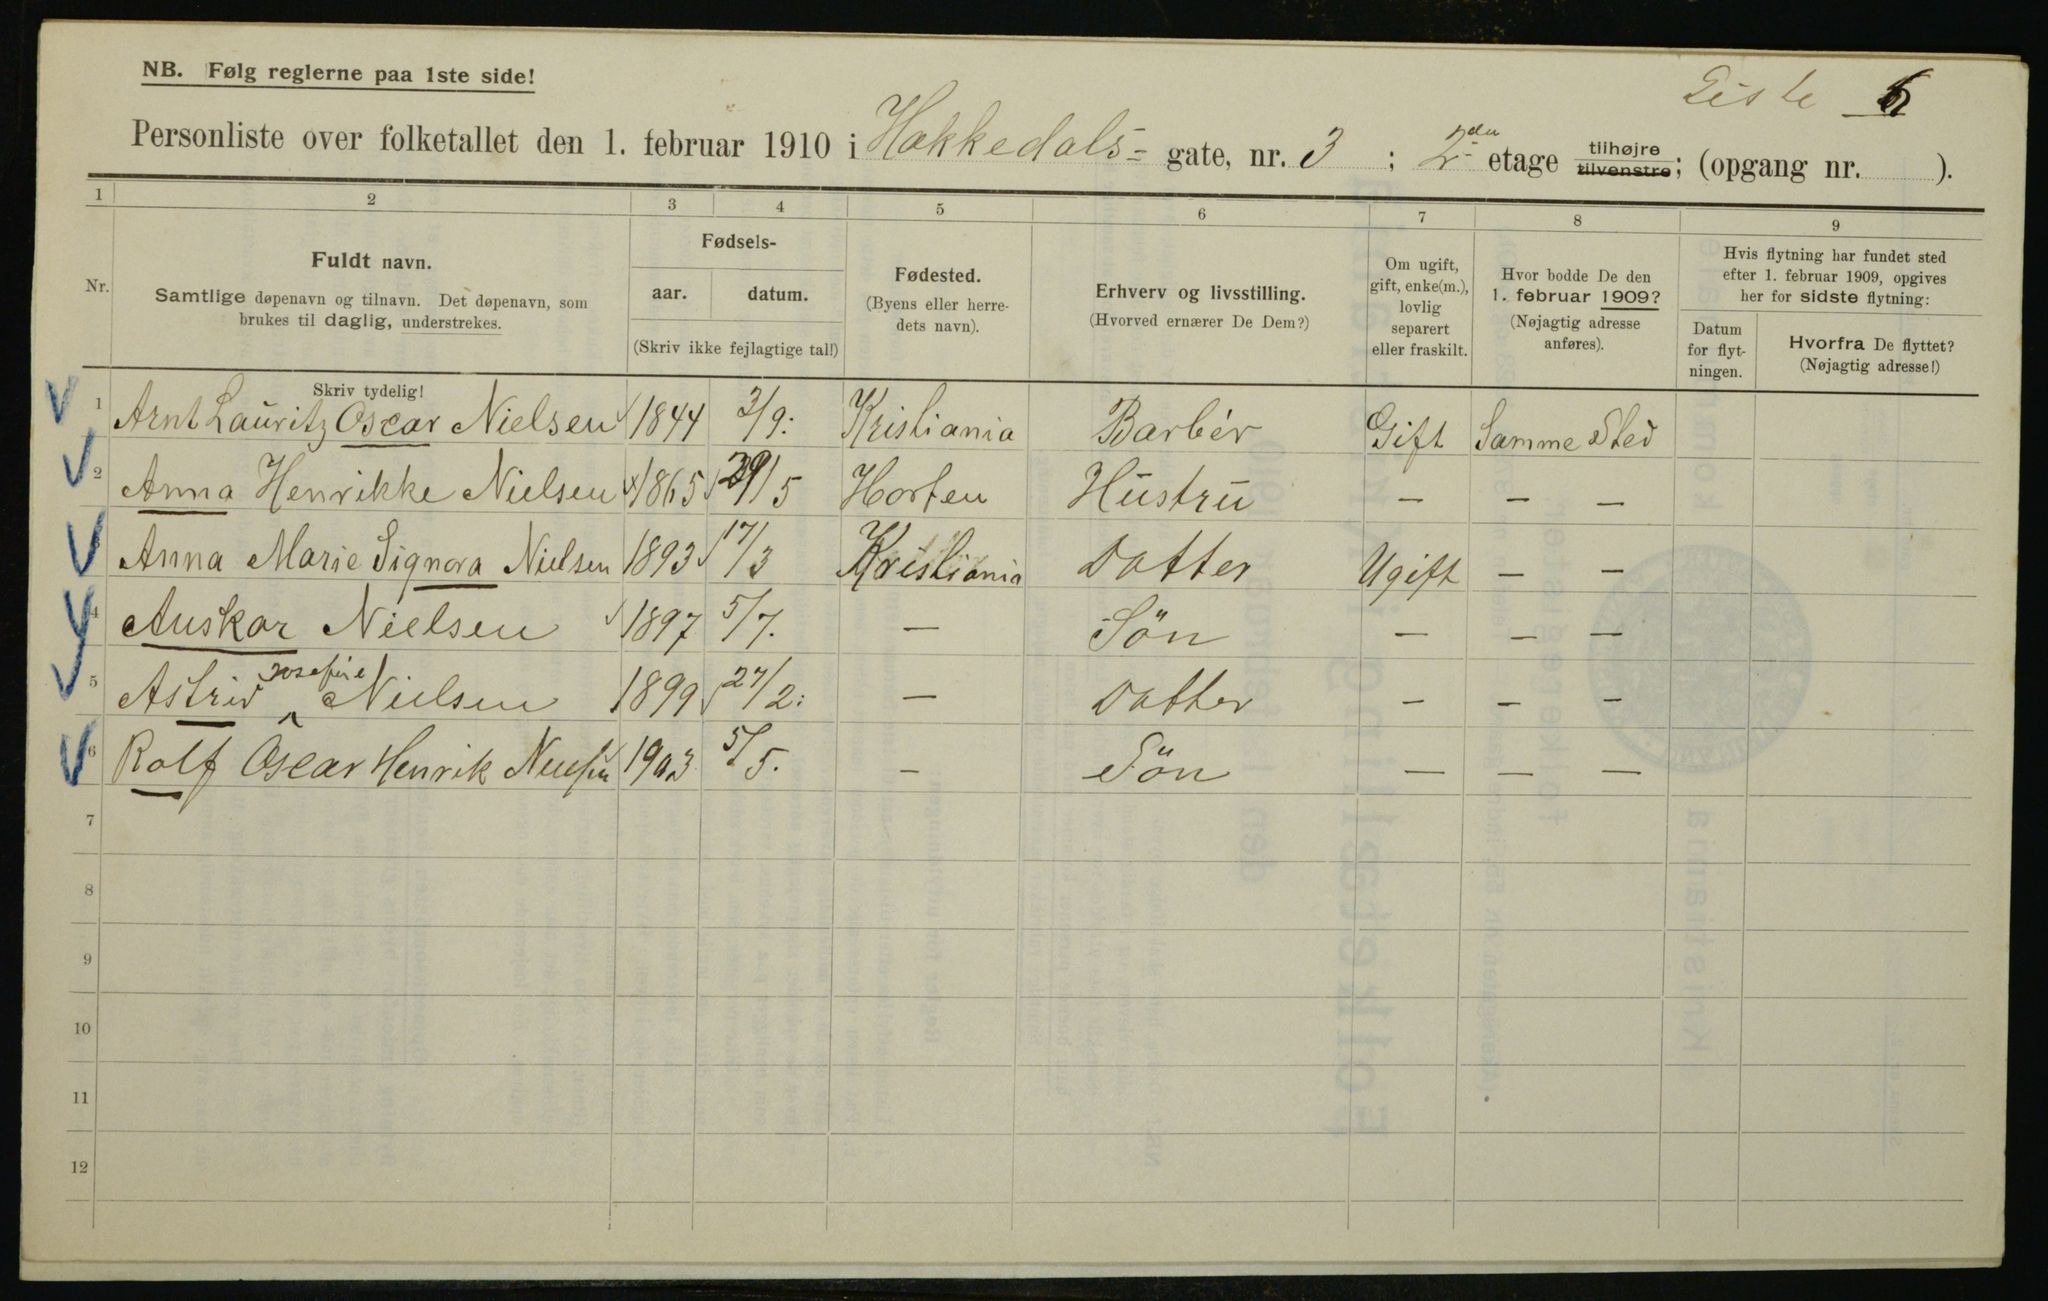 NB. Følg reglerne paa 1ste side!
Liste
Personliste over folketallet den 1. februar 1910 i Hakkedals- gate, nr. 3 ; 2den etage tilhøjre tilvenstre; (opgang nr. ).
1 2 3 4 5 6 7 8 9
Nr.
Fuldt navn.
Samtlige døpenavn og tilnavn. Det døpenavn, som
brukes til daglig, understrekes.
Skriv tydelig!
Fødsels-
aar. datum.
(Skriv ikke fejlagtige tal!)
Fødested.
(Byens eller herre-
dets navn).
Erhverv og livsstilling.
(Hvorved ernærer De Dem?)
Om ugift,
gift, enke(m.),
lovlig
separert
eller fraskilt.
Hvor bodde De den
1. februar 1909?
(Nøjagtig adresse
anføres).
Hvis flytning har fundet sted
efter 1. februar 1909, opgives
her for sidste flytning:
Datum
for flyt-
ningen.
Hvorfra De flyttet?
(Nøjagtig adresse!)
1 Arnt Lauritz Oscar Nielsen 1844 3/9: Kristiania Barbér Gift Samme Sted
2 Anna Henrikke Nielsen 1865 29/5 Horten Hustru — — —
3 Anna Marie Signora Nielsen 1893 17/3 Kristiania Datter Ugift — —
4 Auskar Nielsen 1897 5/7. — Sön — — —
5 Astrid Josefine Nielsen 1899 27/2: — Datter — — —
6 Rolf Oscar Henrik Nielsen 1903 5/5. — Sön — — —
7
8
9
10
11
12